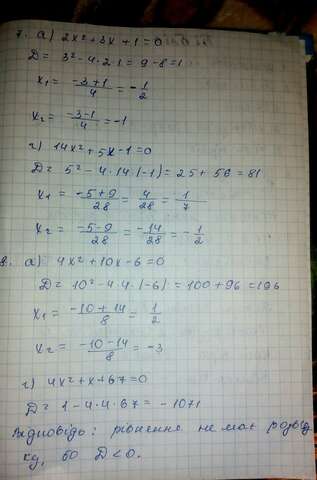 7. а) 2x²+3x+1=0
D = 3²-4·2·1 = 9-8=1
x₁ = (-3+1)/4 = -1/2
x₂ = (-3-1)/4 = -1
г) 14x²+5x-1=0
D = 5²-4·14·(-1) = 25+56=81
x₁ = (-5+9)/28 = 4/28 = 1/7
x₂ = (-5-9)/28 = -14/28 = -1/2
8. а) 4x²+10x-6=0
D = 10²-4·4·(-6) = 100+96=196
x₁ = (-10+14)/8 = 1/2
x₂ = (-10-14)/8 = -3
г) 4x²+x+67=0
D = 1-4·4·67 = -1071
Відповідь: рівняння не має розв'яз
ку, бо D<0.